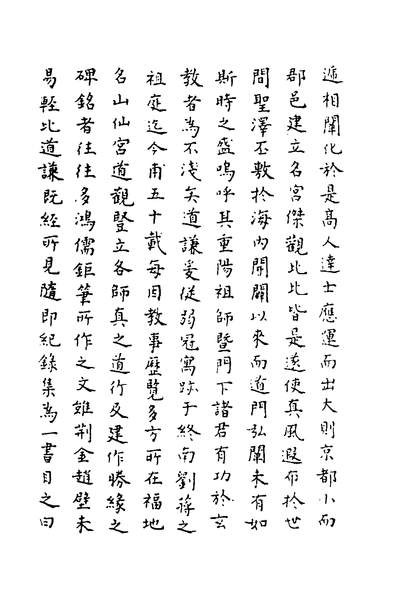 遞相闡化於是髙人達士應運而出大則京都小而
郡邑建立名宮傑觀比比皆是遂使真風遐布於世
間聖澤丕敷於海內開闢以來而道門弘闡未有如
斯時之盛嗚呼其重陽祖師曁門下諸君有功於玄
教者為不淺矣道謙爰從弱冠寓跡于終南劉蔣之
祖庭迄今甫五十載每因教事歷覽多方所在福地
名山仙宮道觀豎立各師真之道行及建作勝緣之
碑銘者往往多鴻儒鉅筆所作之文雖荆金趙壁未
易輕比道謙既經所見隨即紀錄集為一書目之曰